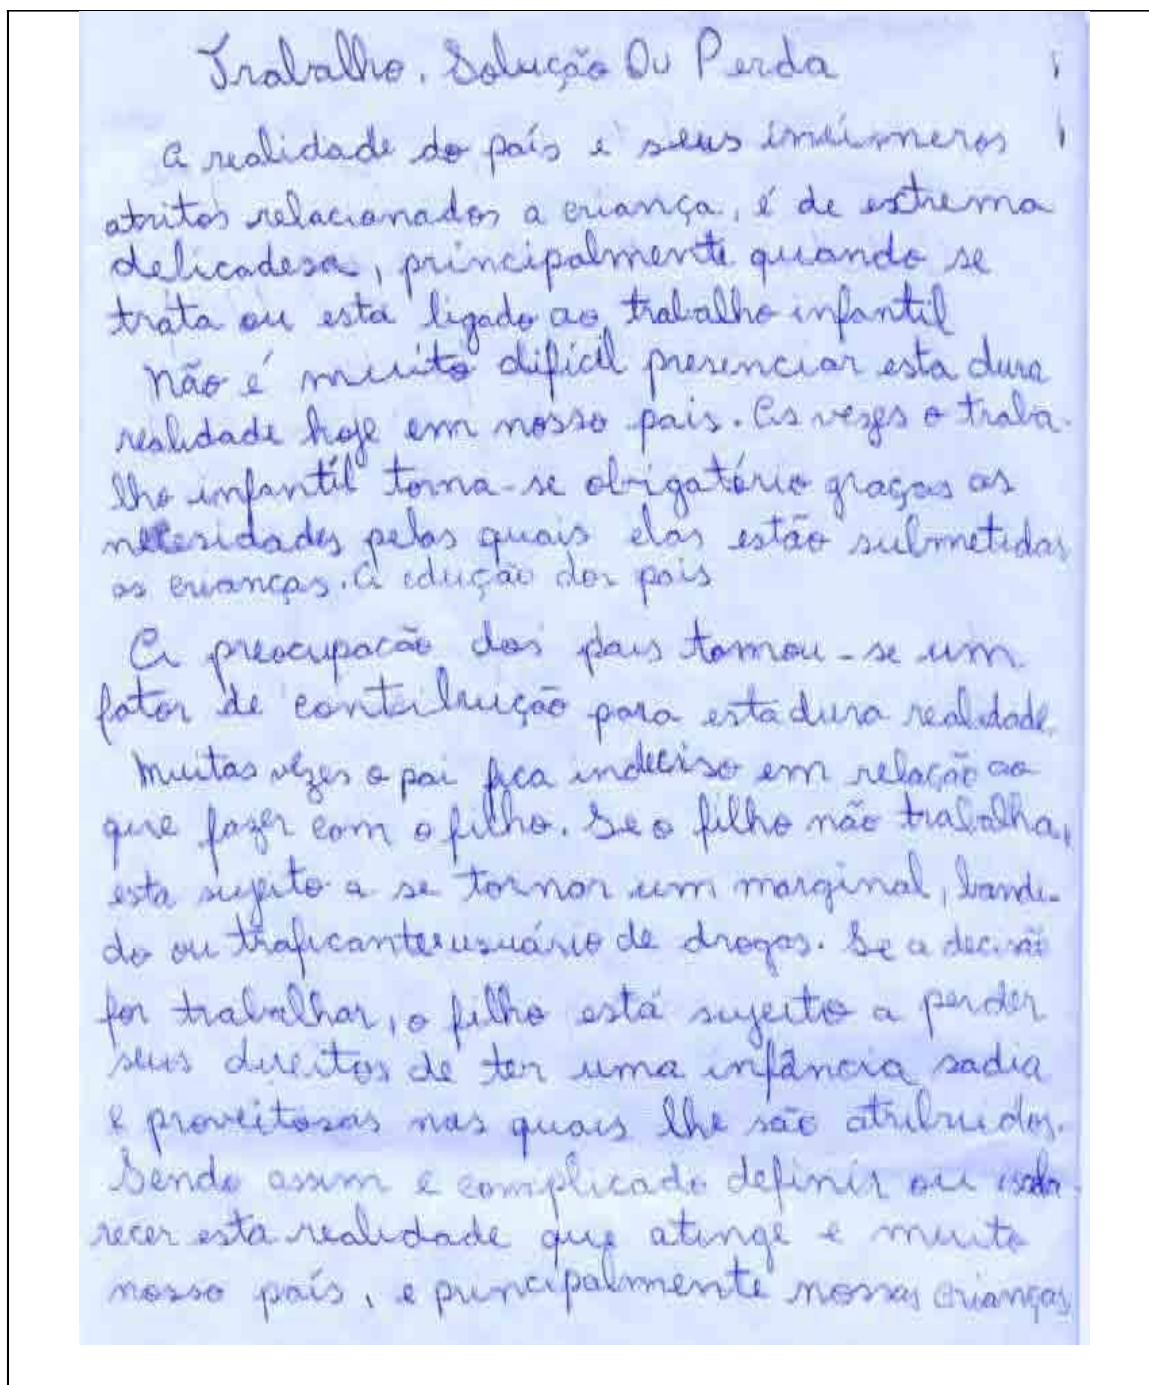 Trabalho. Solução Ou Perda
A realidade do país e seus inúmeros
atritos relacionados a criança, é de extrema
delicadesa, principalmente quando se
trata ou está ligado ao trabalho infantil
Não é muito difícil presenciar esta dura
realidade hoje em nosso país. As vezes o traba-
lho infantil torna-se obrigatório graças as
necesidades pelas quais elas estão submetidas
as crianças. A edução dos pais
A preocupacão dos pais tornou-se um
fator de contribuição para esta dura realidade.
Muitas vezes o pai fica indeciso em relação ao
que fazer com o filho. Se o filho não trabalha,
esta sujeito a se tornar um marginal, bandi-
do ou traficante usuário de drogas. Se a decisão
for trabalhar, o filho está sujeito a perder
seus direitos de ter uma infância sadia
e proveitosas nas quais lhe são atribuidos.
Sendo assim e complicado definir ou escla-
recer esta realidade que atinge e muito
nosso país, e principalmente nossas crianças